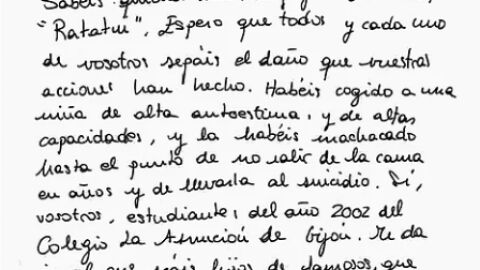 Sabéis
"Ratatui". Espero que todos y cada uno
de vosotros sepáis el daño que vuestras
acciones han hecho. Habéis cogido a una
niña de alta autoestima, y de altas
capacidades, y la habéis machacado
hasta el punto de no salir de la cama
en años y de llevarla al suicidio. Sí,
vosotros, estudiantes del año 2002 del
Colegio La Asunción de Gijón. Me da
igual que seáis hijos de famosos, que